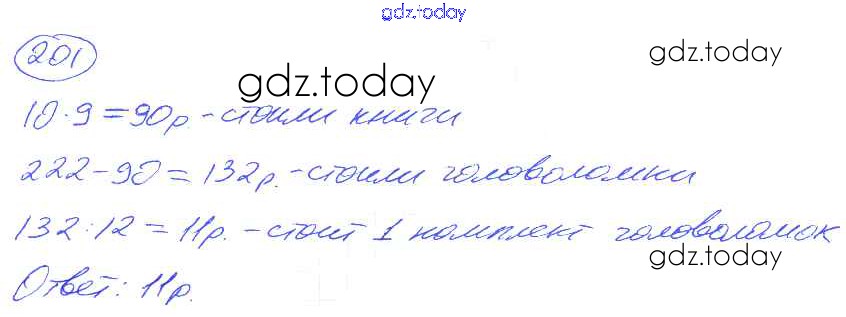 gdz.today
201
gdz.today
gdz.today
10·9=90р.-стоили книги
222-90=132р.-стоили головоломки
132:12=11р.-стоит 1 комплект головоломок
gdz.today
Ответ: 11р.